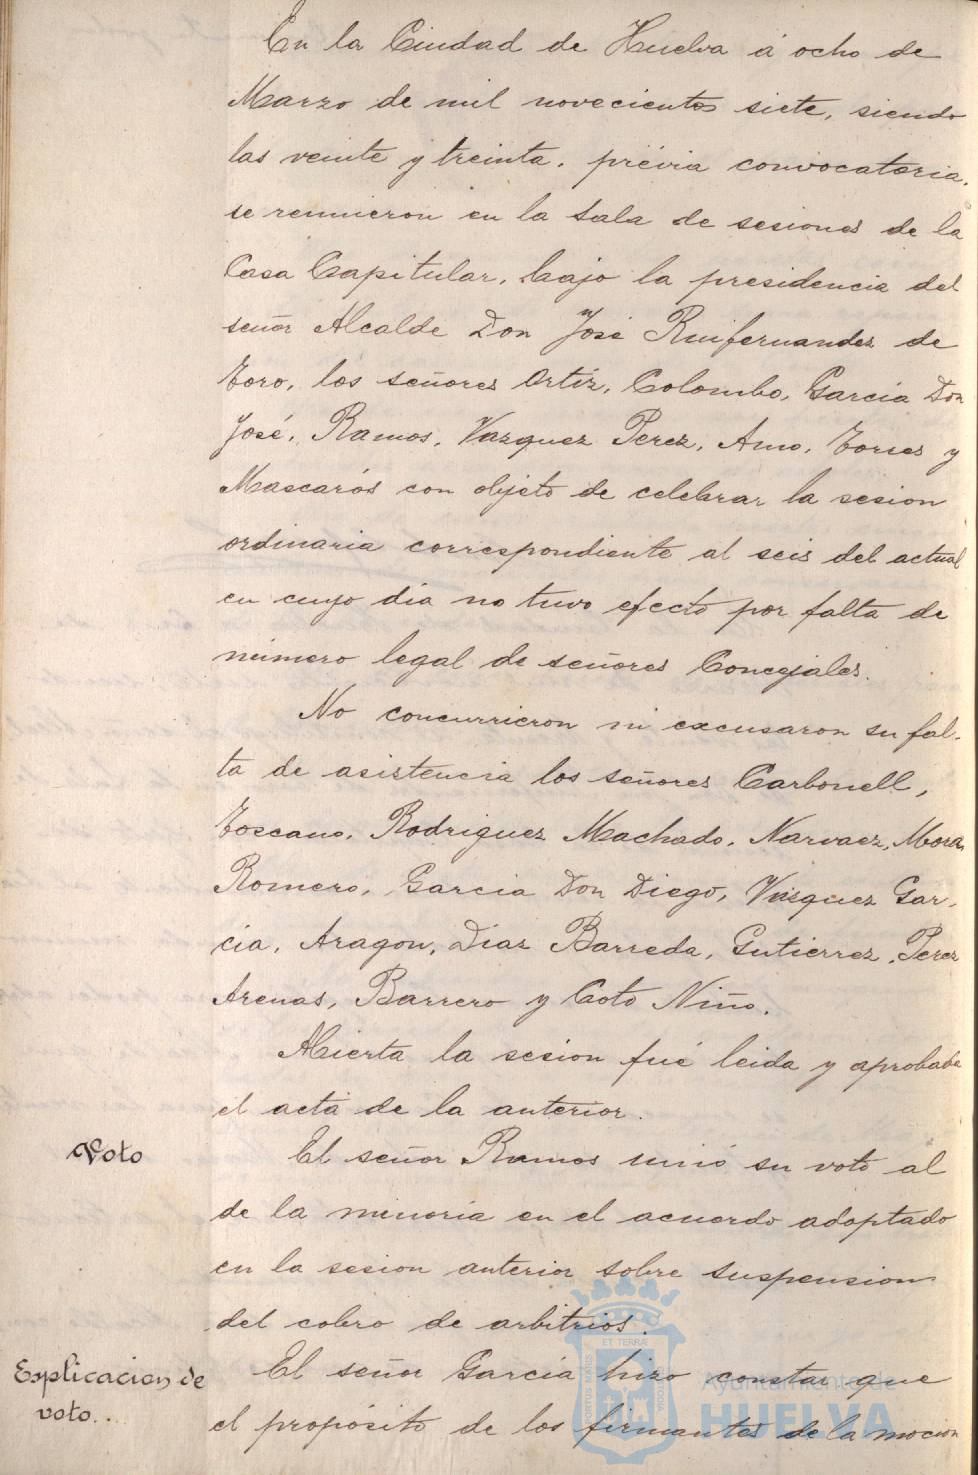 En la Ciudad de Huelva á ocho de
Marzo de mil novecientos siete, siendo
las veinte y treinta, prévia convocatoria,
se reunieron en la Sala de sesiones de la
Casa Capitular, bajo la presidencia del
señor Alcalde Don José Ruifernandez de
Toro, los señores Ortíz, Colombo, García Don
José, Ramos, Vazquez Perez, Amo, Torres y
Mascarós con objeto de celebrar la sesion
ordinaria correspondiente al seis del actual
en cuyo dia no tuvo efecto por falta de
número legal de señores Concejales.
No concurrieron ni excusaron su fal-
ta de asistencia los señores Carbonell,
Toscano, Rodriguez Machado, Narvaez, Mora
Romero, Garcia Don Diego, Vasquez Gar-
cia, Aragon, Diaz Barreda, Gutierrez, Perez
Arenas, Barrero y Coto Niño.
Abierta la sesion fué leida y aprobada
el acta de la anterior.
Voto
El señor Ramos unió su voto al
de la minoría en el acuerdo adoptado
en la sesion anterior sobre suspension
del cobro de arbitrios.
Esplicacion de
voto..
El señor García hizo constar que
el propósito de los firmantes de la mocion
Ayuntamiento de
HUELVA